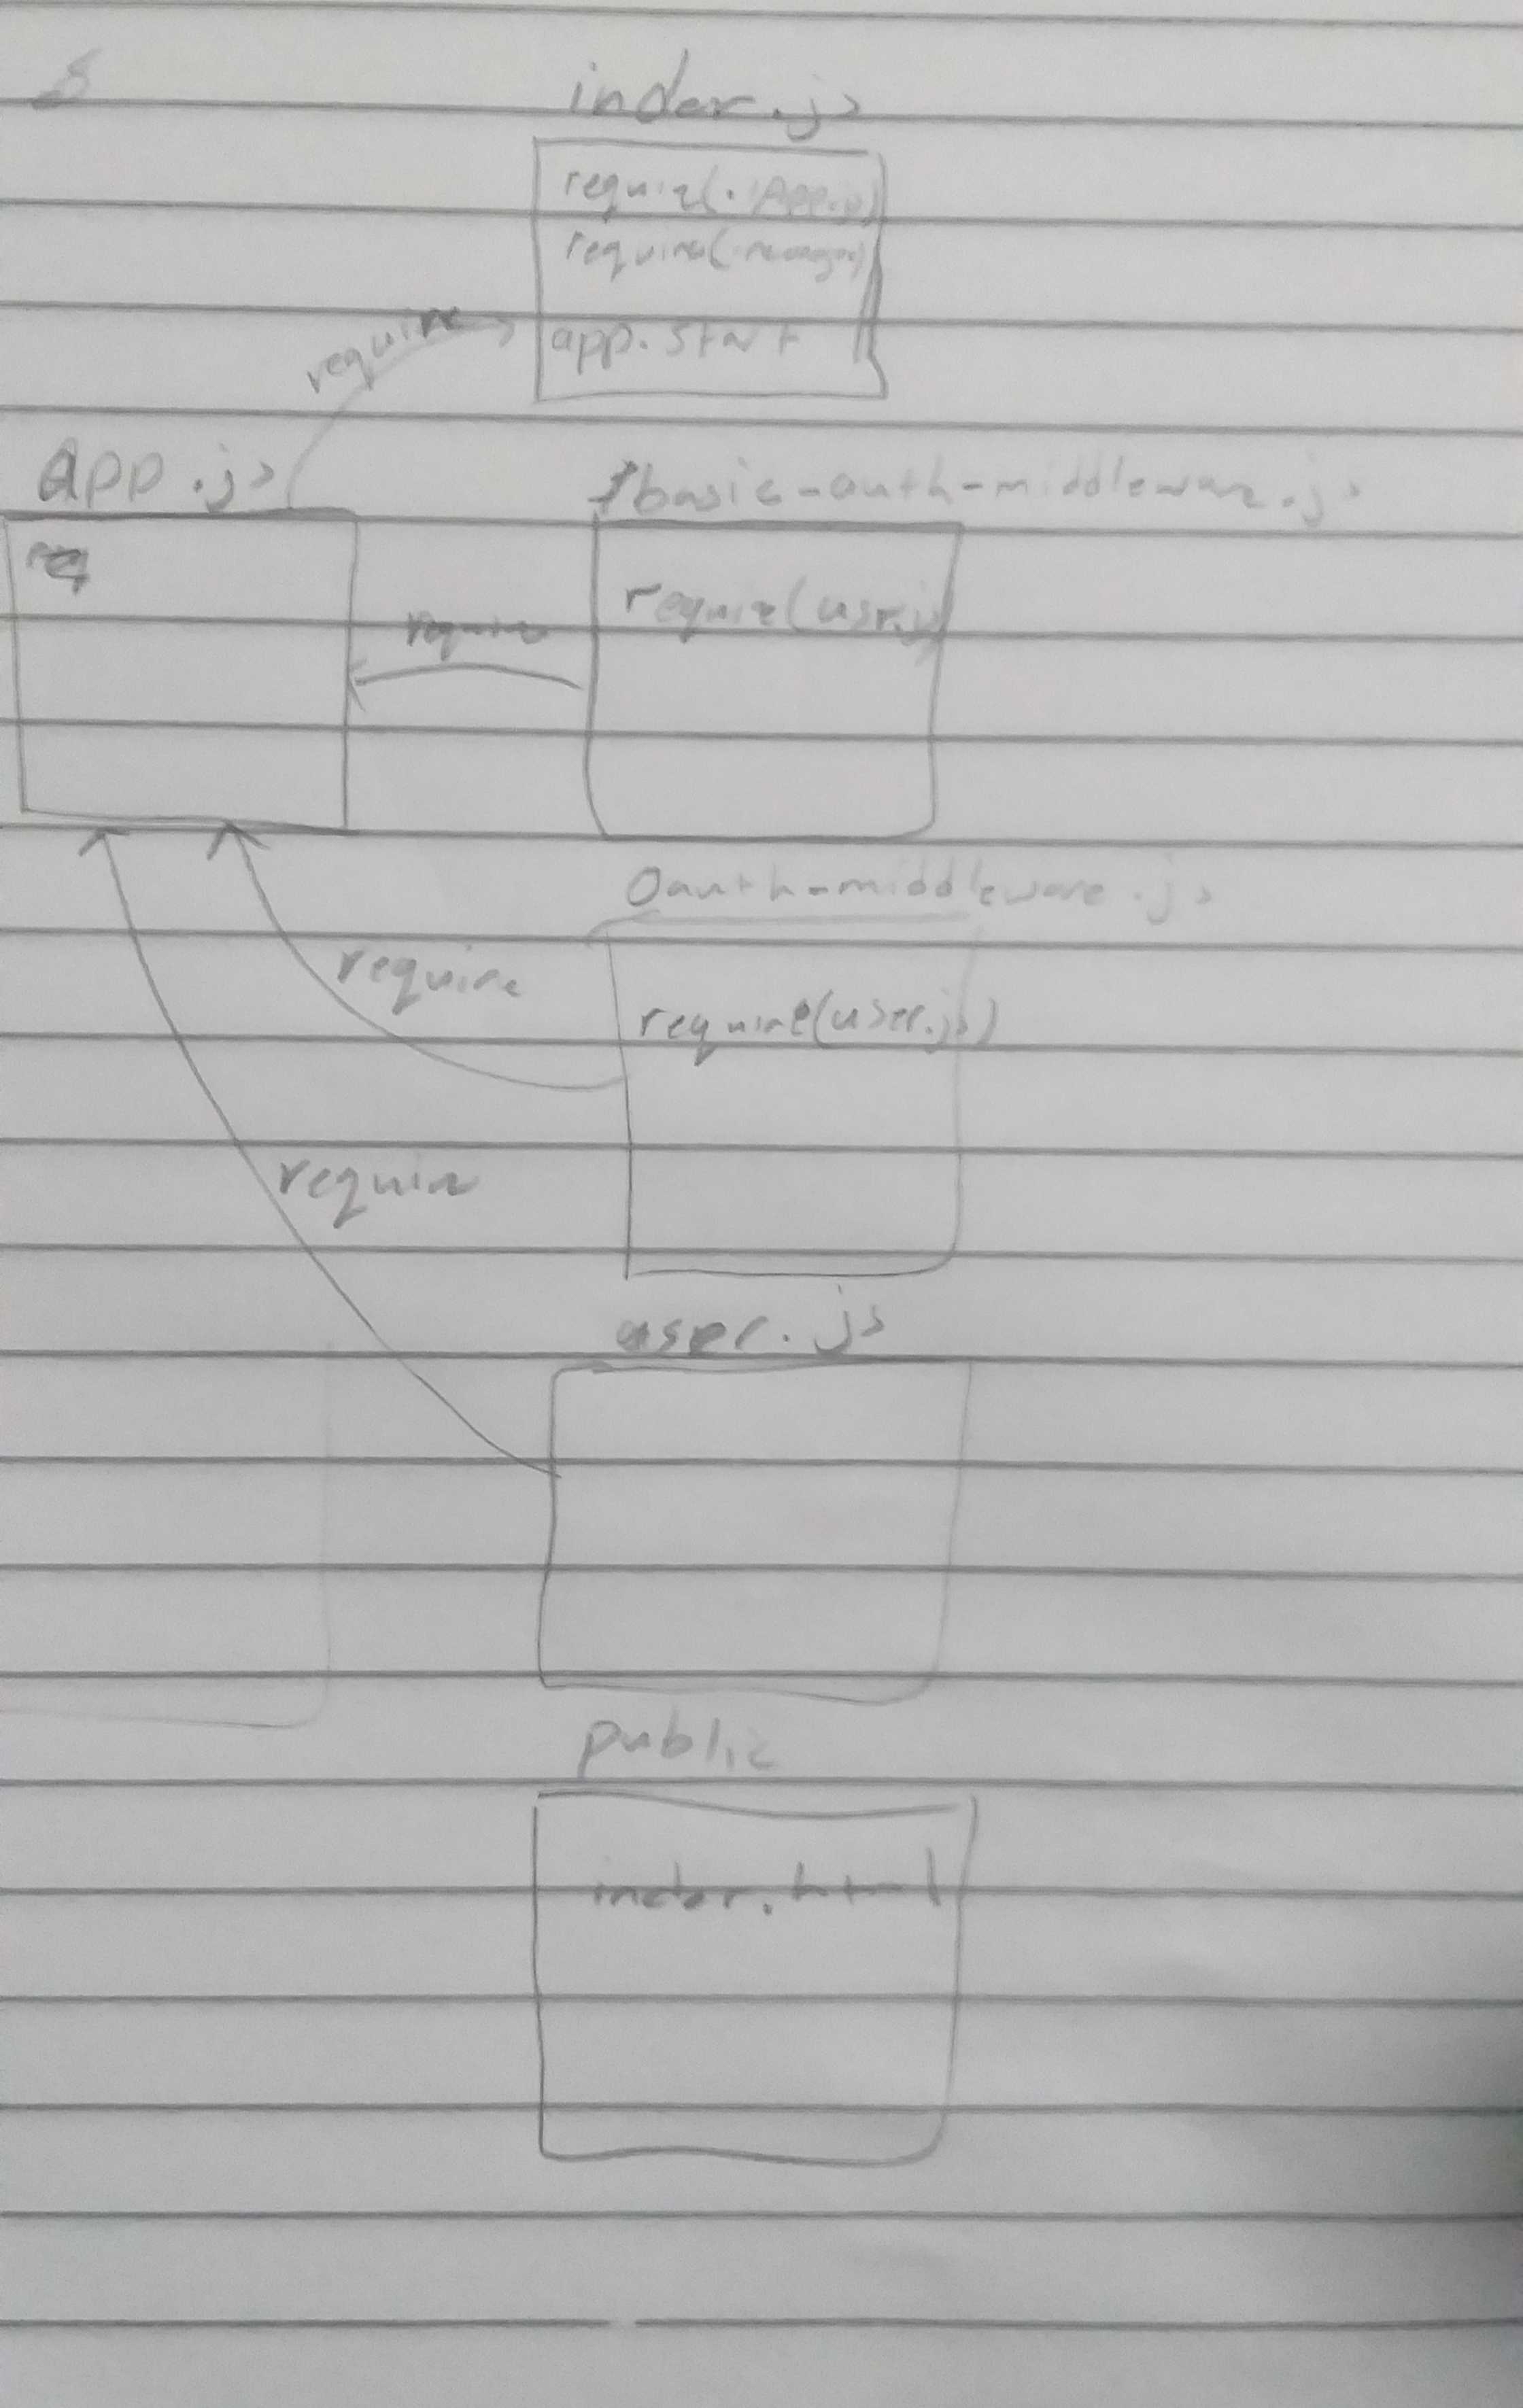 index.js
require(./App.js)
require(mongoose)
app.start
require
app.js
req
basic-auth-middleware.js
require(user.js)
require
Oauth-middleware.js
require(user.js)
require
require
user.js
public
index.html